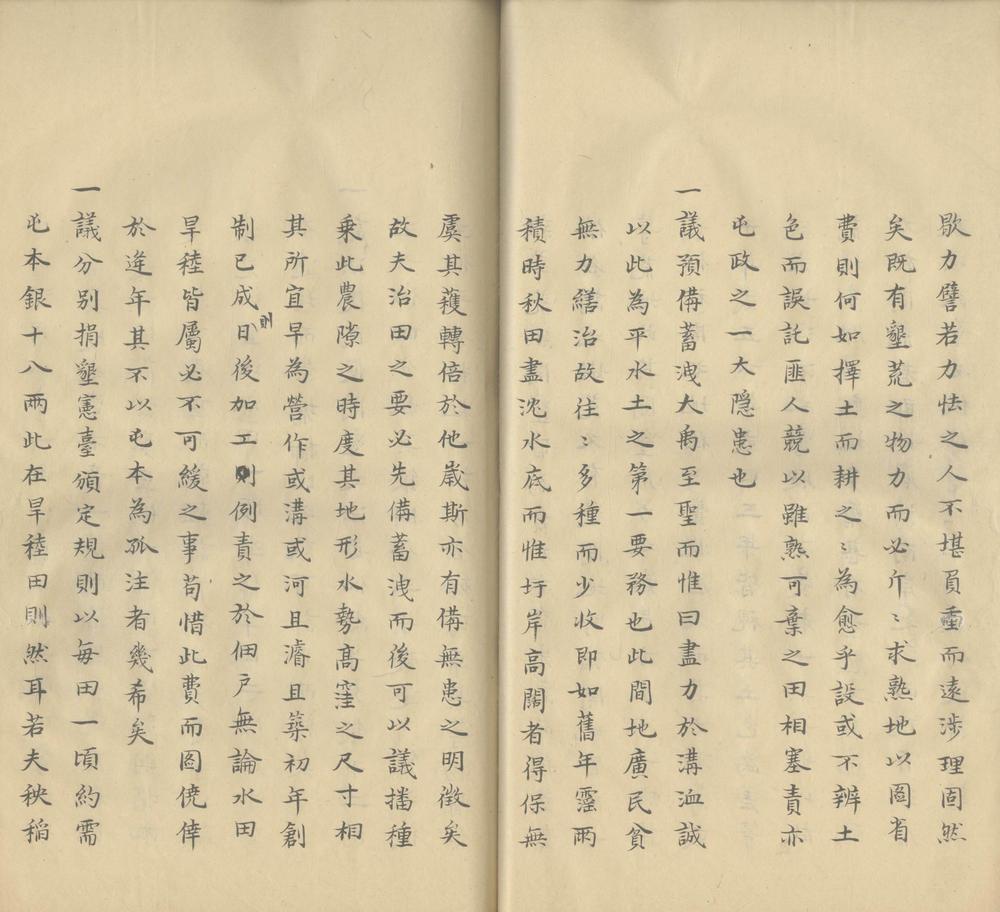 歇力譬若力怯之人不堪負重而遠涉理固然
矣既有墾荒之物力而必斤〻求熟地以圖省
費則何如擇土而耕之〻為愈乎設或不辨土
色而誤託匪人競以雖熟可棄之田相塞責亦
屯政之一大隱患也
一議預備蓄洩大禹至聖而惟曰盡力於溝洫誠
以此為平水土之第一要務也此間地廣民貧
無力繕治故往〻多種而少收即如舊年霪雨
積時秋田盡沈水底而惟圩岸高闊者得保無
虞其穫轉倍於他歲斯亦有備無患之明徵矣
故夫治田之要必先備蓄洩而後可以議播種
乗此農隙之時度其地形水勢高窪之尺寸相
其所宜早為營作或溝或河且濬且築初年創
制已成日後加工則例責之於佃戶無論水田
旱稑皆屬必不可緩之事苟惜此費而圖僥倖
於逆年其不以屯本為孤注者幾希矣
一議分別捐墾憲臺頒定規則以每田一頃約需
屯本銀十八兩此在旱稑田則然耳若夫秧稻